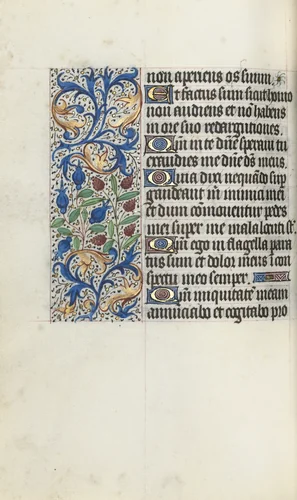 non aperiens os suum.
Et factus sum sicut homo
non audiens et no͂ habens
in ore suo redargutiones.
Qm͂ in te dn͂e speraui tu
exaudies me dn͂e ds meus.
Quia dixi nequan͂do sup
gaudeant in͂ inimici mei
et dum co͂mouentur pedes
mei super me mala locuti st͂
Qm͂ ego in flagella para
tus sum et dolor meus con
spectu meo semper.
Qm͂ iniquitate͂ meam
annunciabo et cogitabo pro